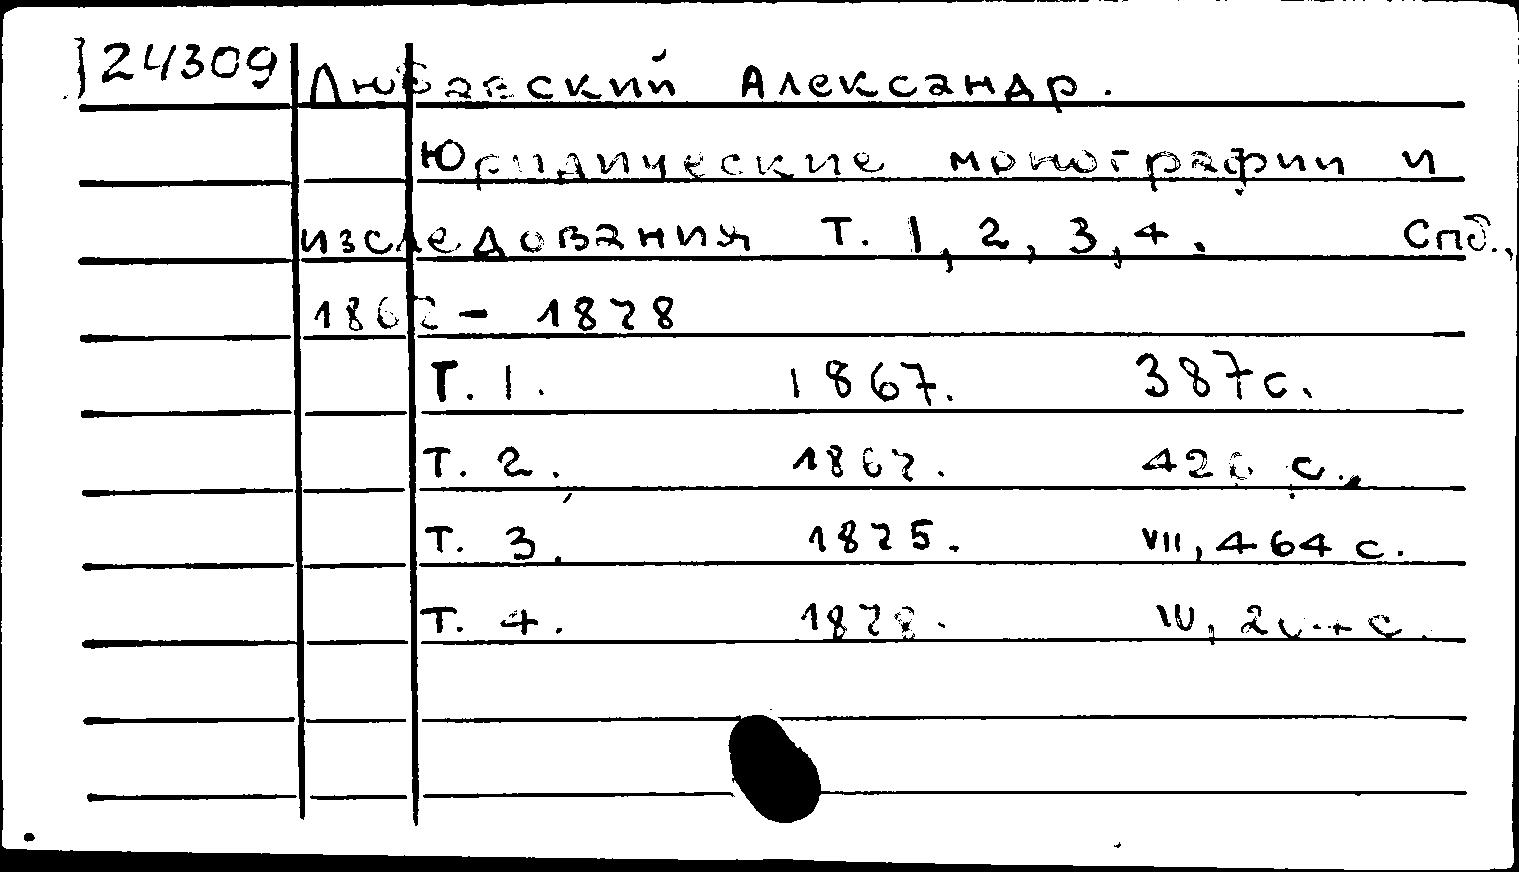 24309 Любавский Александр.
Юридические монографии и
изследования Т. 1, 2, 3, 4. Спб.,
1867 - 1878
Т. 1. 1867. 387 с.
Т. 2. 1867. 426 с.
Т. 3. 1875. VII, 464 с.
Т. 4. 1878. IV, с.